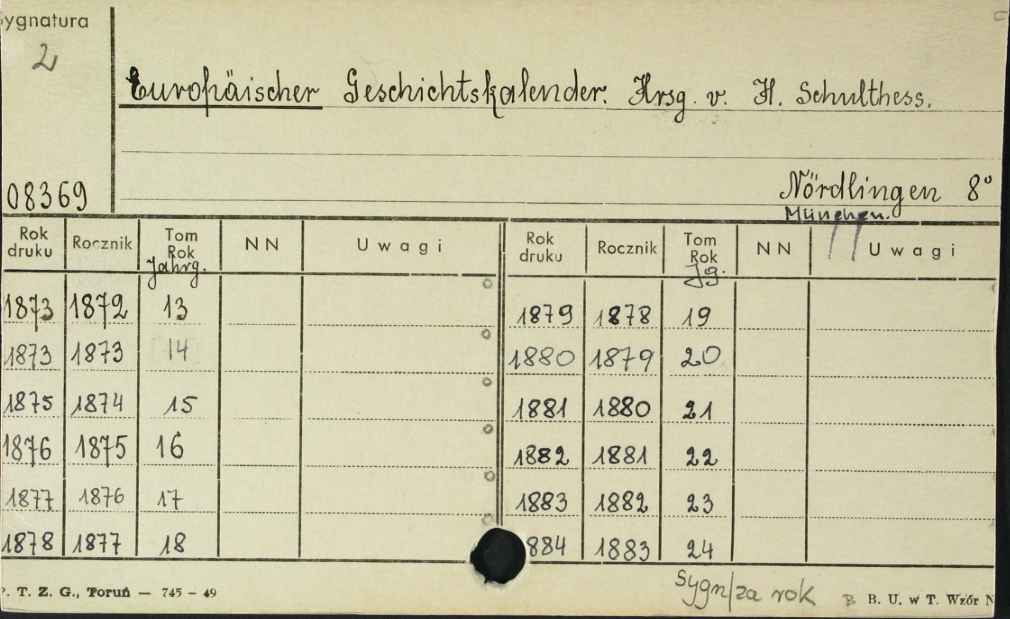 Sygnatura
2
Europäischer Geschichtskalender. Hrsg. v. H. Schulthess.
08369
Nördlingen 8°
München.
Rok druku Rocznik Tom Rok Jahrg. NN Uwagi Rok druku Rocznik Tom Rok Jg. NN Uwagi
1873 1872 13 1879 1878 19
1873 1873 14 1880 1879 20
1875 1874 15 1881 1880 21
1876 1875 16 1882 1881 22
1877 1876 17 1883 1882 23
1878 1877 18 884 1883 24
P. T. Z. G., Toruń — 745 - 49
Sygn/za rok
B. U. w T. Wzór N